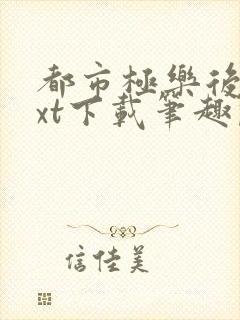 都市極樂後
xt下載筆趣
信佳美